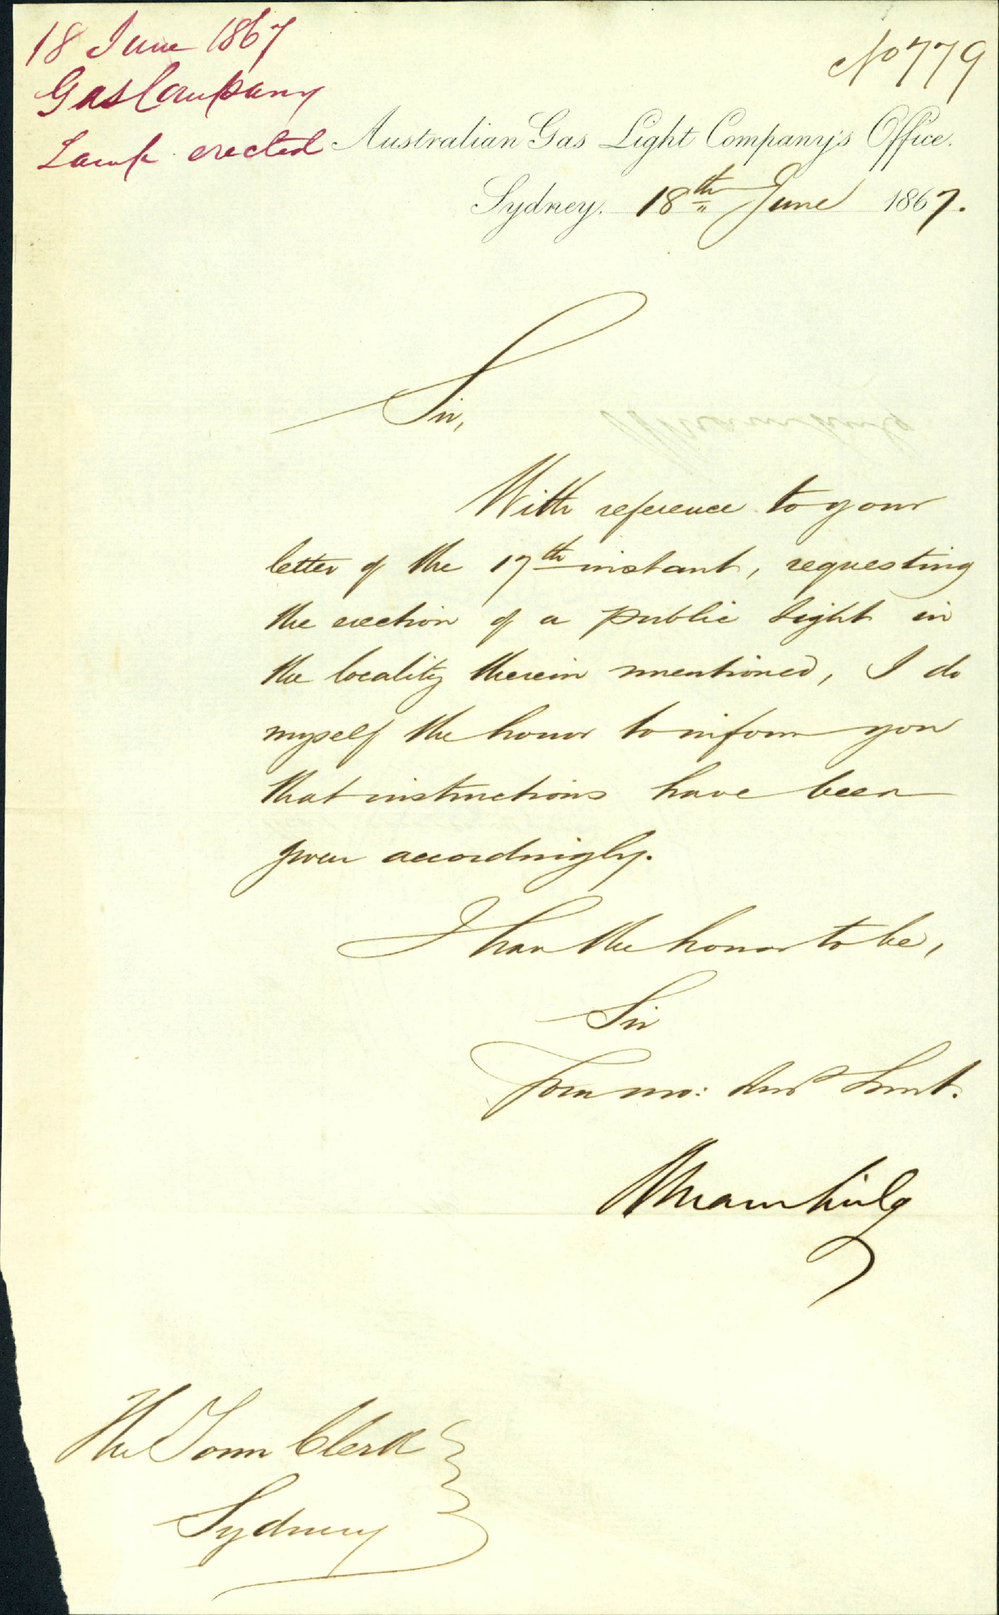 18 June 1867
Gas Company
Lamp erected
No 779
Australian Gas Light Company's Office.
Sydney. 18th June 1867.
Sir,
With reference to your
letter of the 17th instant, requesting
the erection of a public light in
the locality therein mentioned, I do
myself the honor to inform you
that instructions have been
given accordingly.
I have the honor to be,
Sir
Your mo: Obt Servt.
The Town Clerk
Sydney